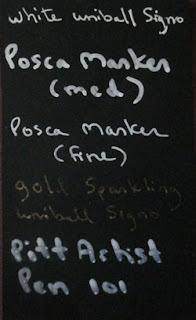 white uniball Signo
Posca Marker
(med)
Posca Marker
(fine)
gold Sparkling
uniball Signo
Pitt Artist
Pen 101